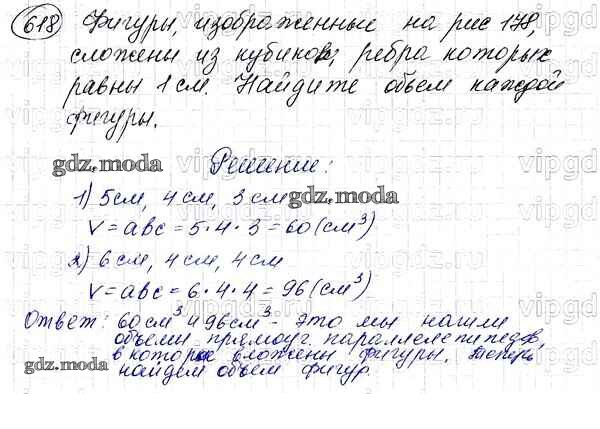 618 Фигуры, изображенные на рис 178,
сложены из кубиков, ребра которых
равны 1 см. Найдите объем каждой
фигуры.
gdz.moda Решение:
1) 5 см, 4 см, 3 см gdz.moda
V = abc = 5 · 4 · 3 = 60 (см³)
2) 6 см, 4 см, 4 см
V = abc = 6 · 4 · 4 = 96 (см³)
Ответ: 60 см³ и 96 см³ - это мы нашли
объемы прямоуг. параллелепипедов,
в которые вложены фигуры. Теперь
gdz.moda найдем объем фигур.